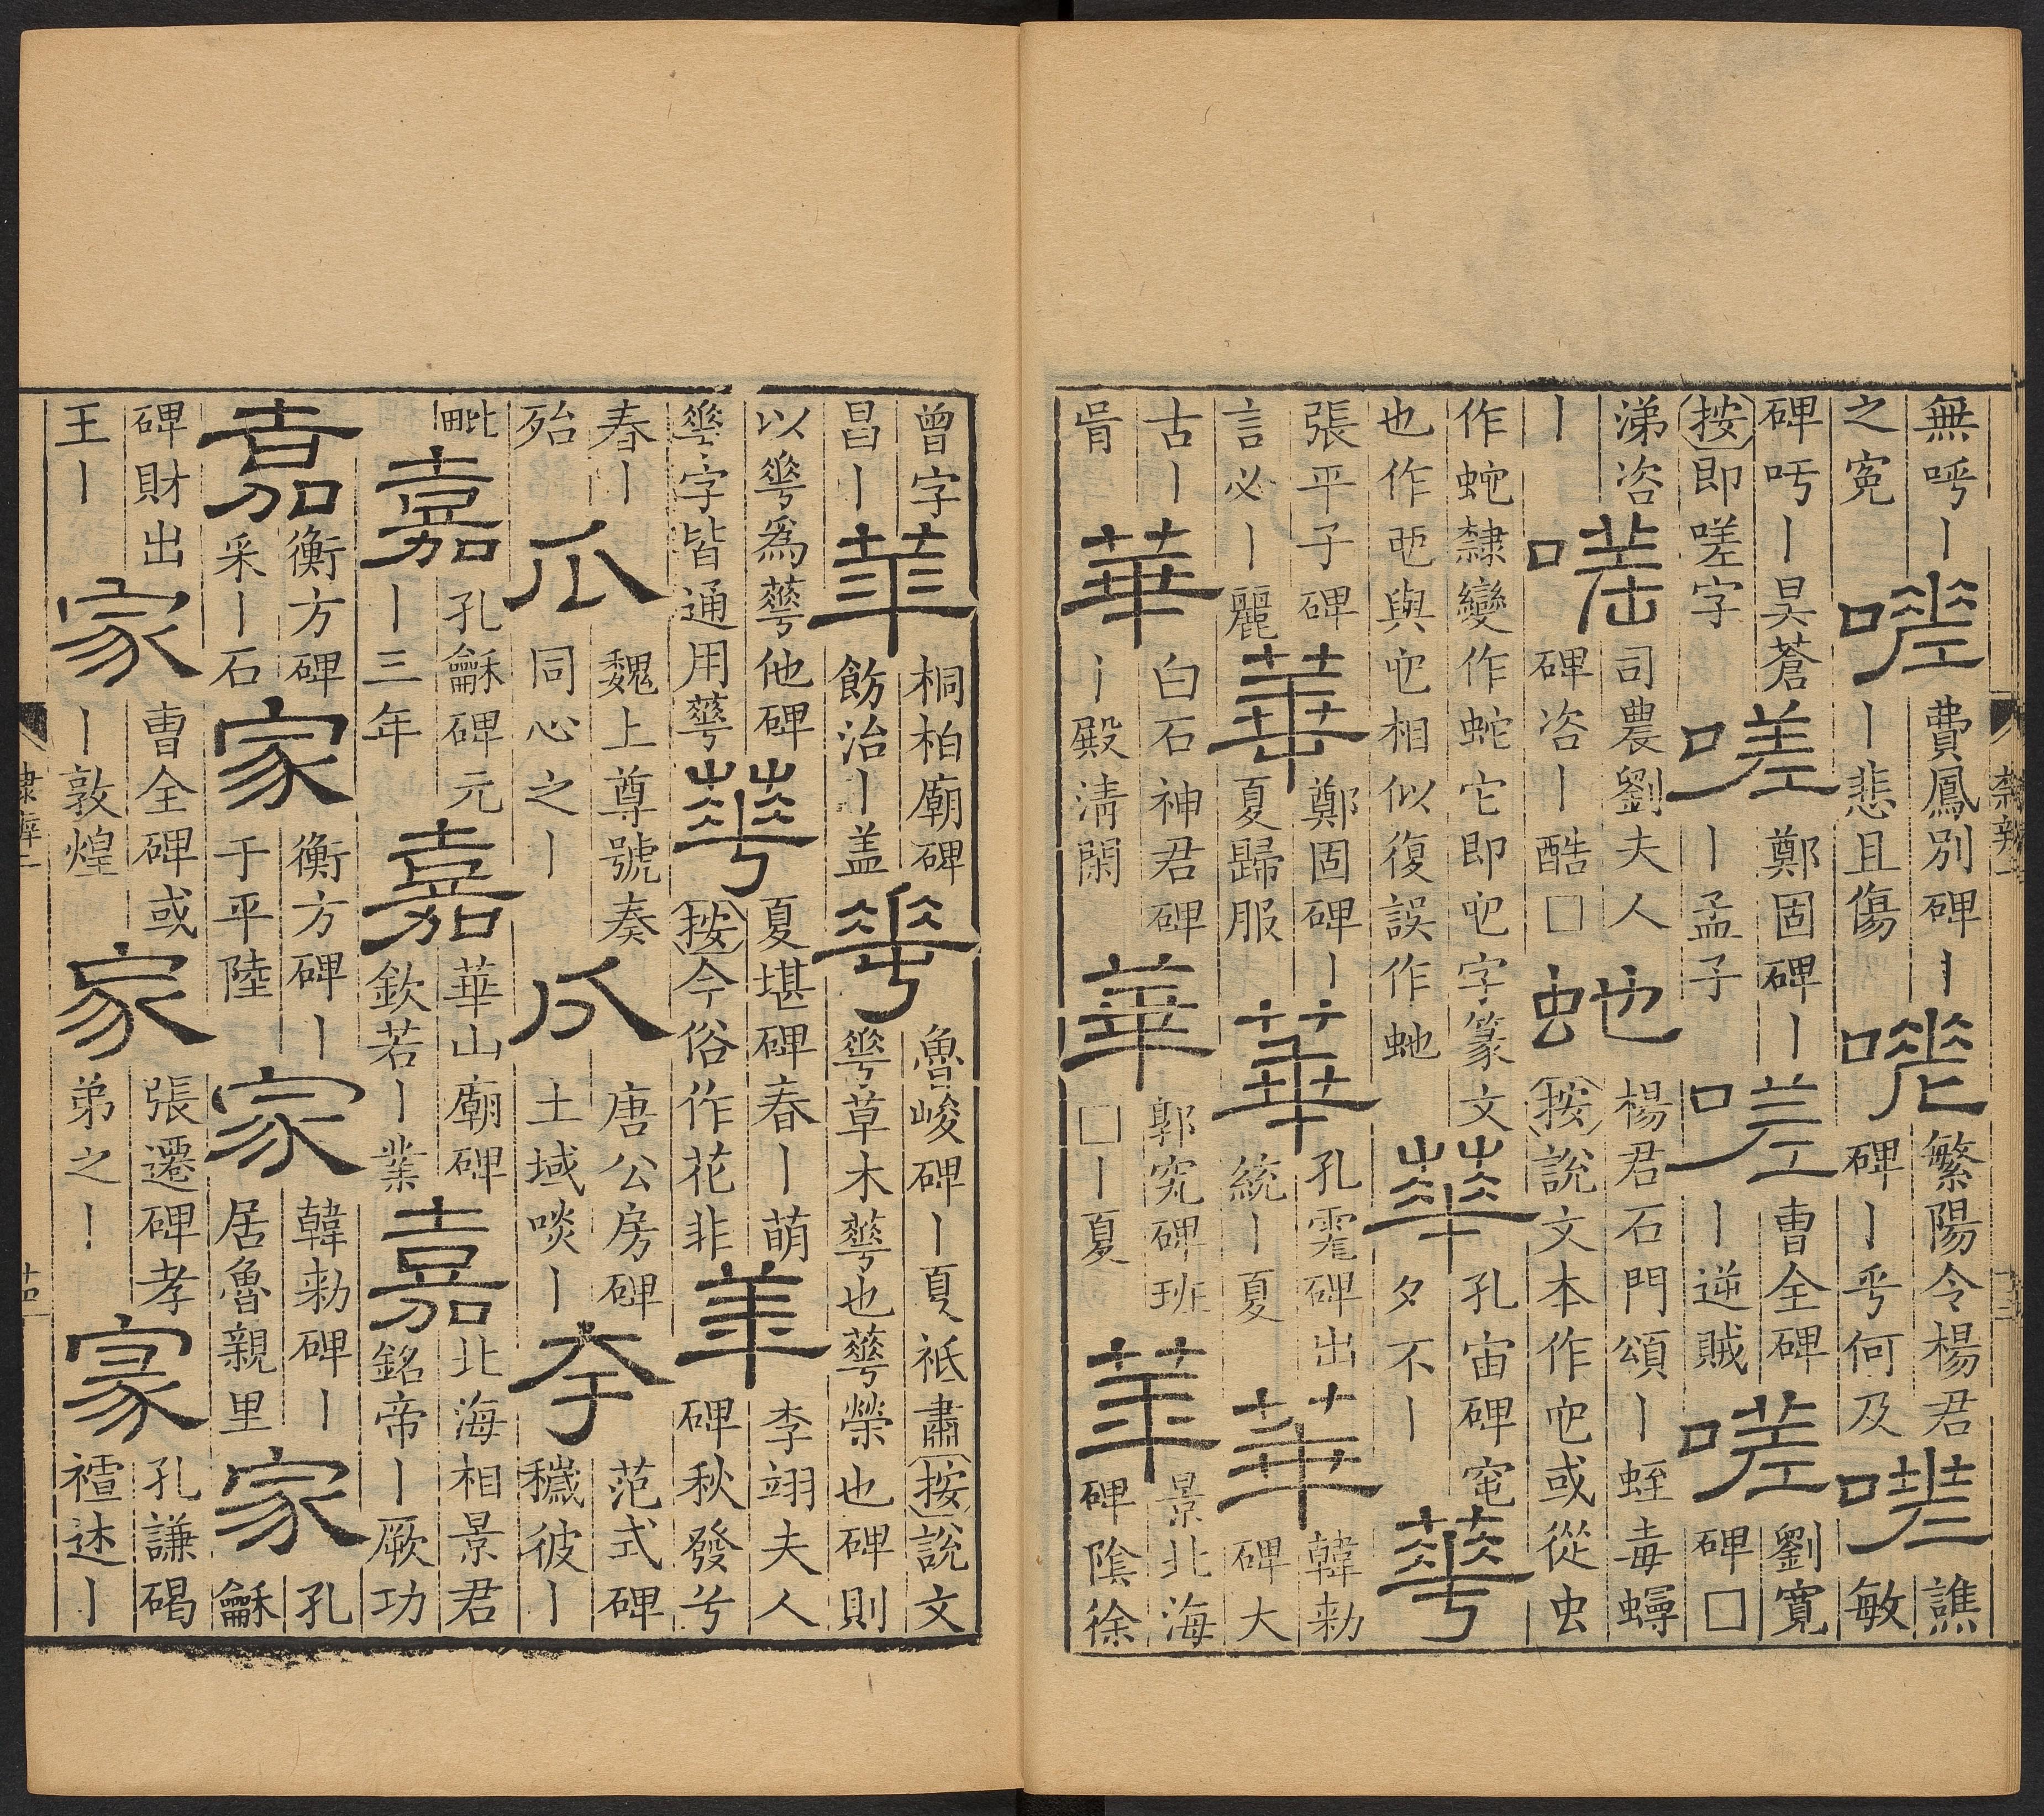 無呼丨之寃嗟費鳳別碑丨丨悲且傷嗟繁陽令楊君碑丨乎何及嗟譙敏
碑吁丨昊蒼按即嗟字嗟鄭固碑丨丨孟子嗟曹全碑丨逆賊嗟劉寛碑□
涕咨丨嗟司農劉夫人碑咨丨酷□虵楊君石門頌丨蛭毒蟳按說文本作㐌或從虫
作蛇隸變作蛇它即㐌字篆文也作與㐌相似復誤作虵華孔宙碑窀夕不丨華
張平子碑言必丨麗華鄭固碑丨夏歸服華孔碑出統丨夏華韓勑碑大
古丨胥華白石神君碑丨殿清閑華郭究碑班□丨夏華景北海碑陰徐
曾字昌丨華桐柏廟碑飭治丨盖𠌶魯峻碑丨夏祗肅按說文𠌶草木𦻏也𦻏榮也碑則
以𠌶為𦻏他碑𠌶字皆通用𦻏𦻏夏堪碑春丨萌按今俗作花非華李翊夫人碑秋發兮
春丨殆瓜魏上尊號奏同心之丨瓜唐公房碑土域啖丨夸范式碑穢彼丨
毗嘉孔龢碑元丨三年嘉華山廟碑欽若丨業嘉北海相景君銘帝丨厥功
嘉衡方碑采丨石家衡方碑丨于平陸家韓勑碑丨居魯親里家孔龢
碑財出王丨家曹全碑或丨敦煌家張遷碑孝弟之丨家孔謙碣禮述丨
隸辨二 十四